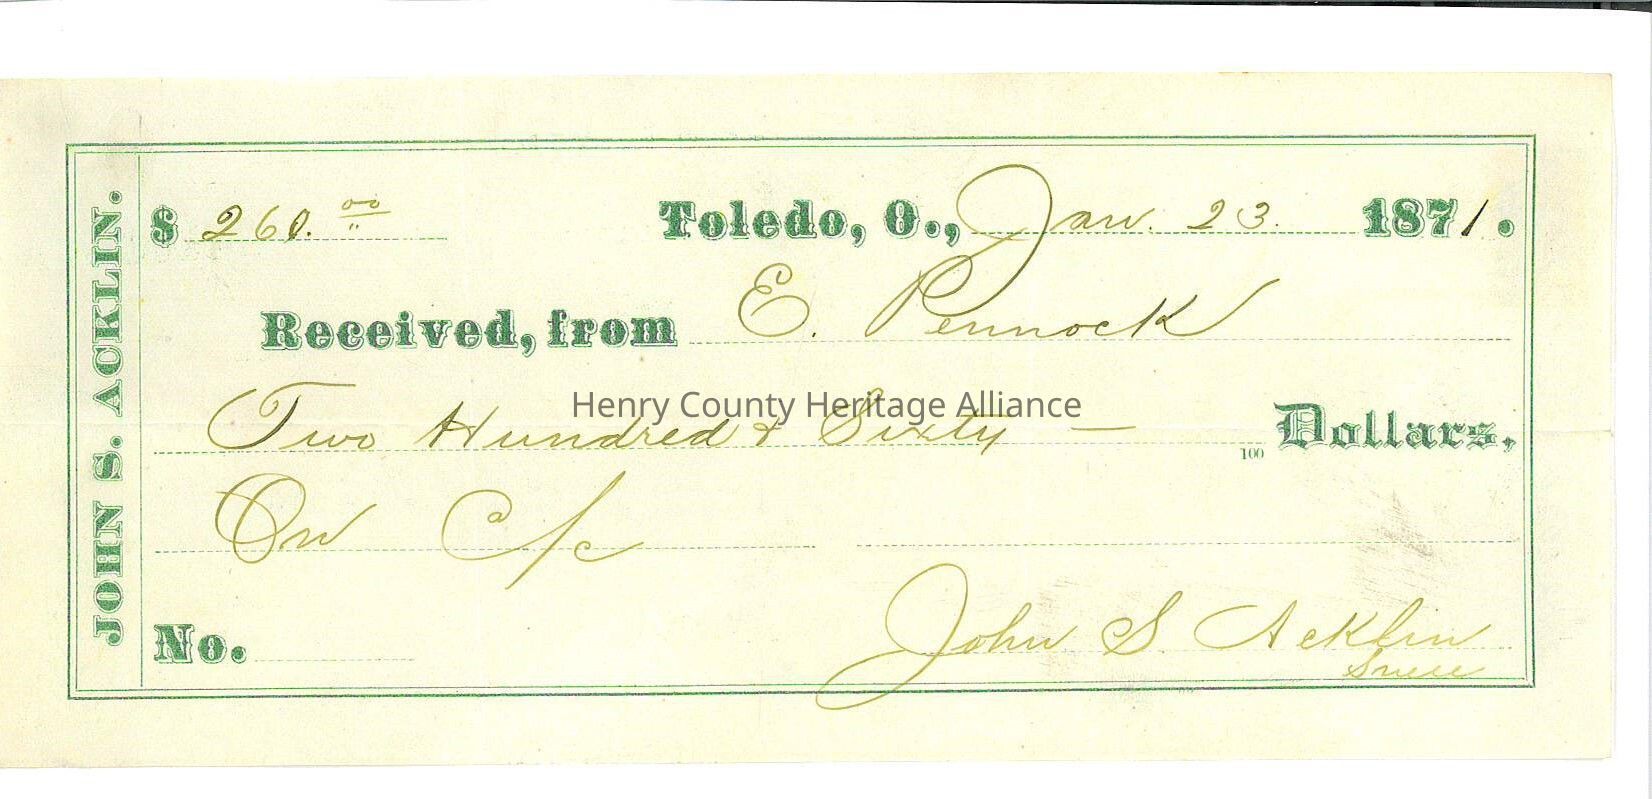 JOHN S. ACKLIN.
$ 260.00 Toledo, O., Jan. 23. 1871.
Received, from E. Pennock
Two Hundred & Sixty — 100 Dollars,
Henry County Heritage Alliance
On a/c
No. John S Acklin